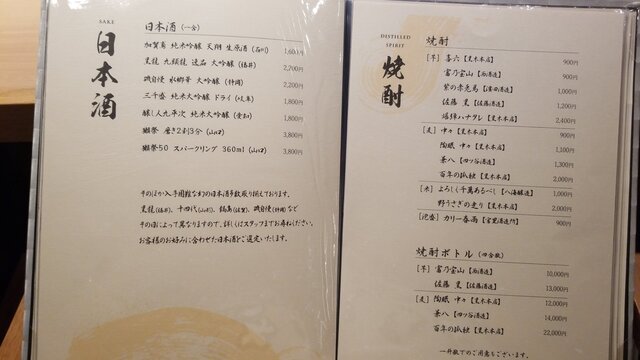 SAKE
日本酒
日本酒 (一合)
加賀鳶 純米大吟醸 天翔 生原酒 (石川) 1,600円
黒龍 九頭龍 逸品 大吟醸 (福井) 2,200円
磯自慢 水響華 大吟醸 (静岡) 2,200円
三千盛 純米大吟醸 ドライ (岐阜) 1,800円
醸し人九平次 純米大吟醸 (愛知) 1,800円
獺祭 磨き2割3分 (山口) 3,800円
獺祭50 スパークリング 360ml (山口) 3,800円
そのほか入手困難な幻の日本酒多数取り揃えております。
黒龍(福井)、十四代(山形)、鍋島(佐賀)、磯自慢(静岡)など
その日によって異なりますので、詳しくはスタッフまでお尋ねください。
お客様のお好みに合わせた日本酒をご選定いたします。
DISTILLED
SPIRIT
焼酎
焼酎
[芋] 喜六【黒木本店】 900円
富乃宝山【西酒造】 900円
紫の赤兎馬【濱田酒造】 1,000円
佐藤 黒【佐藤酒造】 1,200円
爆弾ハナタレ【黒木本店】 2,400円
[麦] 中々【黒木本店】 900円
陶眠 中々【黒木本店】 1,100円
兼八【四ツ谷酒造】 1,300円
百年の孤独【黒木本店】 2,000円
[米] よろしく千萬あるべし【八海醸造】 1,000円
野うさぎの走り【黒木本店】 2,000円
[泡盛] カリー春雨【宮里酒造所】 900円
焼酎ボトル (四合瓶)
[芋] 富乃宝山【西酒造】 10,000円
佐藤 黒【佐藤酒造】 13,000円
[麦] 陶眠 中々【黒木本店】 12,000円
兼八【四ツ谷酒造】 14,000円
百年の孤独【黒木本店】 22,000円
一升瓶でのご用意もございます。